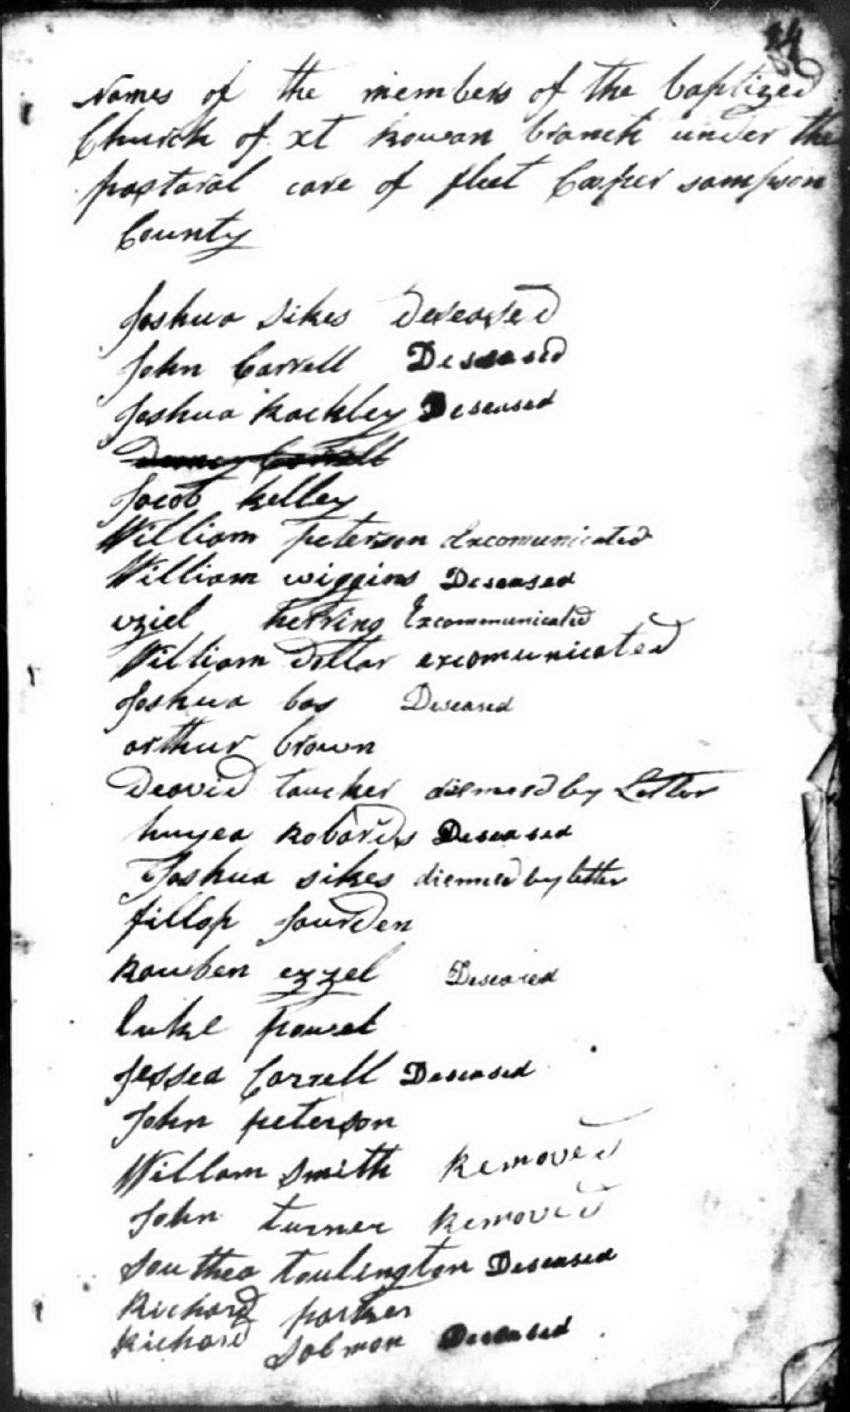 Names of the members of the baptized
Church of xt Rowan branch under the
pastoral care of fleet Cooper sampson
County
Joshua Sikes Deseased
John Carrell Deseased
Joshua Rackley Deseased
Jacob Kelley
William peterson Excomunicated
William wiggins Deseased
uziel herring Excommunicated
William Dollar excomunicated
Joshua bas Deseased
arthur brown
Deavid toucher dismised by Letter
huyea Robards Deseased
Joshua sikes dismised by letter
fillop Jourden
Rouben ezzel Deseased
luke powel
Jessea Carrell Deseased
John peterson
Willam Smith Removed
John turner Removed
Southea toulington Deseased
Richard parker
Richard Solmon Deseased